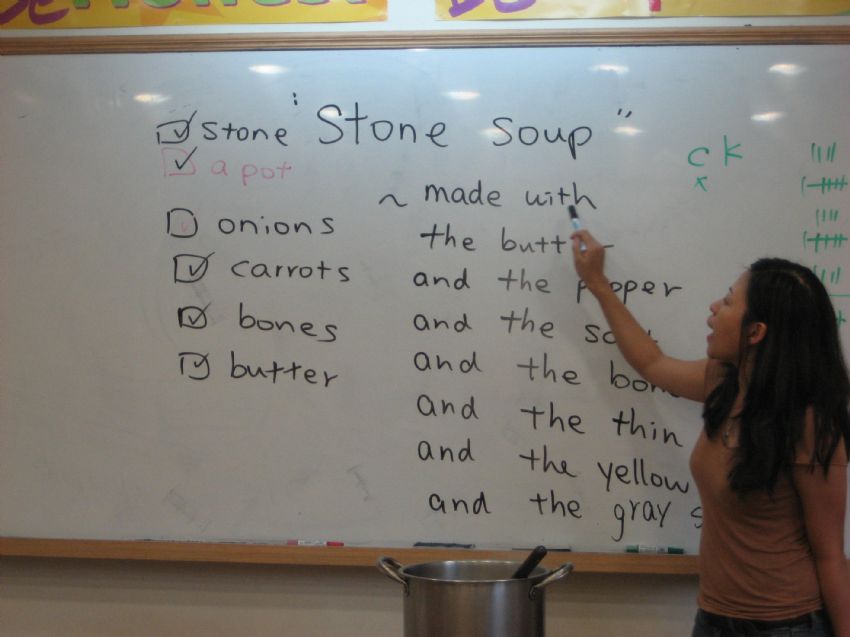 "Stone soup"
stone
a pot
onions
carrots
bones
butter
~ made with
the
and the pepper
and the
and the
and the thin
and the yellow
and the gray
c k